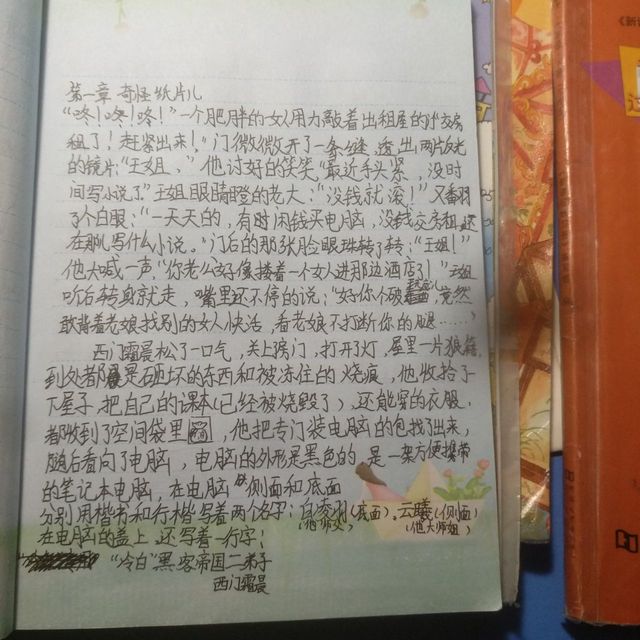 第一章 奇怪妖片儿
“咚!咚!咚!”一个肥胖的女人用力敲着出租屋的门“交房
租了!赶紧出来!”门微微开了一条缝,透出两片反光
的镜片:“王姐、”他讨好的笑笑“最近手头紧,没时
间写小说了”王姐眼睛瞪的老大:“没钱就滚!”又翻
了个白眼:“一天天的,有时闲钱买电脑,没钱交房租,还
在那儿写什么小说。”门后的那张脸眼珠转了转:“王姐!”
他大喊一声“你老公好像搂着一个女人进那边酒店了!”王姐
听后转身就走,嘴里还不停的说:“好你个破 竟然
敢背着老娘找别的女人快活,看老娘不打断你的腿……”
西门霜晨松了一口气,关上房门,打开了灯,屋里一片狼藉,
到处都是砸坏的东西和被冻住的烧痕,他收拾了
下屋子,把自己的课本(已经被烧毁了),还能穿的衣服,
都收到了空间袋里,他把专门装电脑的包找了出来,
随后看向了电脑,电脑的外形是黑色的,是一架方便携带
的笔记本电脑,在电脑的侧面和底面
分别用楷书和行楷写着两个名字:白凌羽(底面)。云曦(侧面)
(他师父) (他大师姐)
在电脑的盖上,还写着一行字:
“冷白”黑客帝国二弟子
西门霜晨